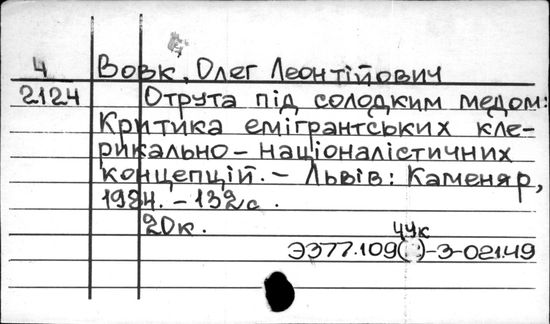 4 Вовк, Олег Леонтійович
2124 Отрута під солодким медом:
Критика емігрантських кле-
рикально-націоналістичних
концепцій. - Львів: Каменяр,
1984. - 132с.
20к.
44к
Э377.109( )-3-021.49